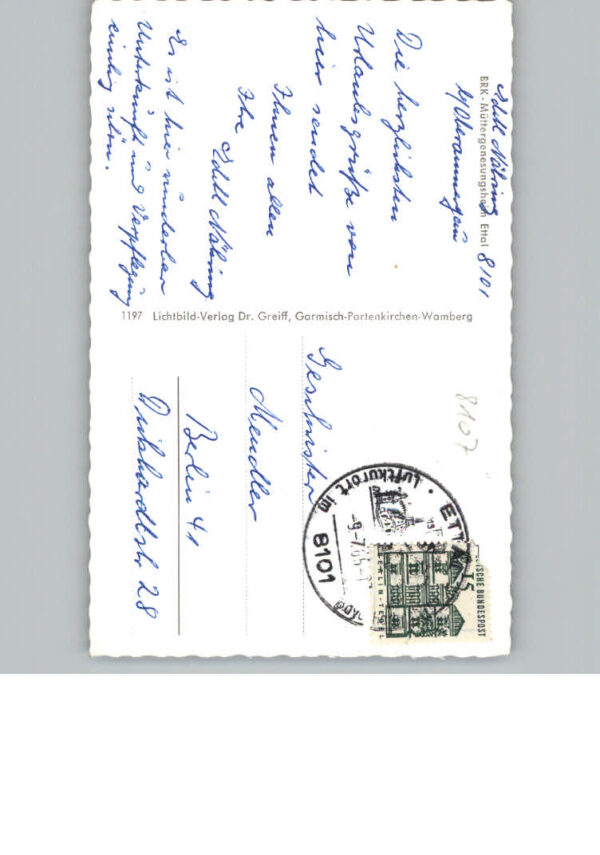 Edith Nähring 8101
BRK-Müttergenesungsheim Ettal
b/Oberammergau
Die herzlichsten
Urlaubsgrüße von
hier sendet
Ihnen allen
Ihre Edith Nähring
Es ist hier wunderbar
Unterkunft und Verpflegung
einzig schön.
1197 Lichtbild-Verlag Dr. Greiff, Garmisch-Partenkirchen-Wamberg
8107
ETTAL
Luftkurort im
8101
15
DEUTSCHE BUNDESPOST
BERLIN-TEGEL
Geschwister
Mendler
Berlin 41
Dickhardtstr 28